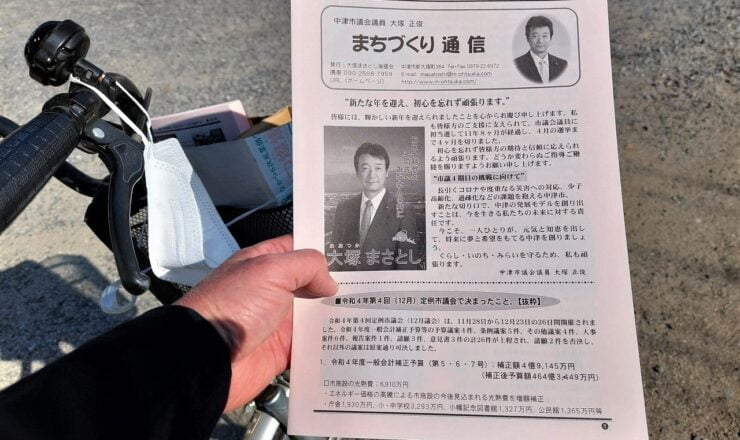 中津市議会議員 大塚 正俊
まちづくり 通信
発行：大塚まさとし後援会 中津市新大塚町384 Tel・Fax 0979-22-6972
携帯 090-2508-7959 E-mail masatoshi@m-ohtsuka.com
URL（ホームページ） http://www.m-ohtsuka.com/
"新たな年を迎え、初心を忘れず頑張ります。"
皆様には、輝かしい新年を迎えられましたことを心からお慶び申し上げます。私
も皆様方のご支援に支えられて、市議会議員に
初当選して11年8ヶ月が経過し、4月の選挙ま
で4ヶ月を切りました。
初心を忘れず皆様方の期待と信頼に応えられ
るよう頑張ります。どうか変わらぬご指導ご鞭
撻を賜りますようお願い申し上げます。
"市議4期目の挑戦に向けて"
長引くコロナや度重なる災害への対応、少子
高齢化、過疎化などの課題を抱える中津市。
新たな切り口で、中津の発展モデルを創り出
すことは、今を生きる私たちの未来に対する責
任です。
今こそ、一人ひとりが、元気と知恵を出し
て、将来に夢と希望をもてる中津を創りましょ
う。
くらし・いのち・みらいを守るため、私も頑
張ります。
中津市議会議員 大塚 正俊
おおつか
大塚 まさとし
■令和4年第4回（12月）定例市議会で決まったこと、【抜粋】
令和4年第4回定例市議会（12月議会）は、11月28日から12月23日の26日間開催され
ました。令和4年度一般会計補正予算等の予算議案4件、条例議案5件、その他議案4件、人事
案件6件、報告案件1件、請願3件、意見書3件の計26件が上程され、請願2件を否決し、
それ以外の議案は原案通り可決しました。
1．令和4年度一般会計補正予算（第5・6・7号）：補正額4億9,145万円
（補正後予算額464億3,449万円）
□市施設の光熱費：6,910万円
・エネルギー価格の高騰による市施設の今後見込まれる光熱費を増額補正
・庁舎1,930万円、小・中学校3,293万円、小幡記念図書館1,327万円、公民館1,365万円等